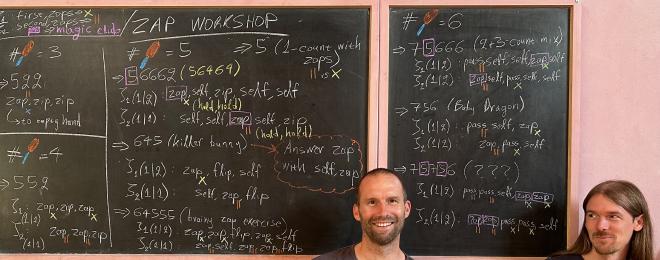 first, zaps =
second, zaps =
= magic club
ZAP WORKSHOP
# = 3
⇒ 522
zap, zip, zip
↳ to empty hand
# = 4
⇒ 552
ζ₁ (1|2) : zap, zap, zip
ζ₂ (1|2) : zap, zap, zip
# = 5
⇒ 5 (1-count with zaps)
|| is x
⇒ 56662 (56464)
ζ₁(1|2) : zap, self, zip, self, self
(hold, hold)
ζ₂(1|2) : self, self, zap, self, zip
(hold, hold)
⇒ 645 (killer bunny) → Answer zap with self, zap
ζ₁(1|2) : zap, flip, self
ζ₂(1|1) : self, zap, flip
⇒ 64555 (brainy zap exercise)
ζ₁(1|2) : zap, zap, flip, zap, self
ζ₂(1|1) : zap, self, zap, zap, flip
# = 6
⇒ 75666 (2+3-count mix)
ζ₁ (1|2) : pass, self, self, zap, self
ζ₂(1|2) : zap, self, pass, self, self
⇒ 756 (Baby Dragon)
ζ₁ (1|2) : pass, self, zap
ζ₂ (1|2) : zap, pass, self
⇒ 75756 (???)
ζ₁ (1|2) : pass, pass, self, zap, zap
ζ₂ (1|2) : zap, zap, pass, pass, self